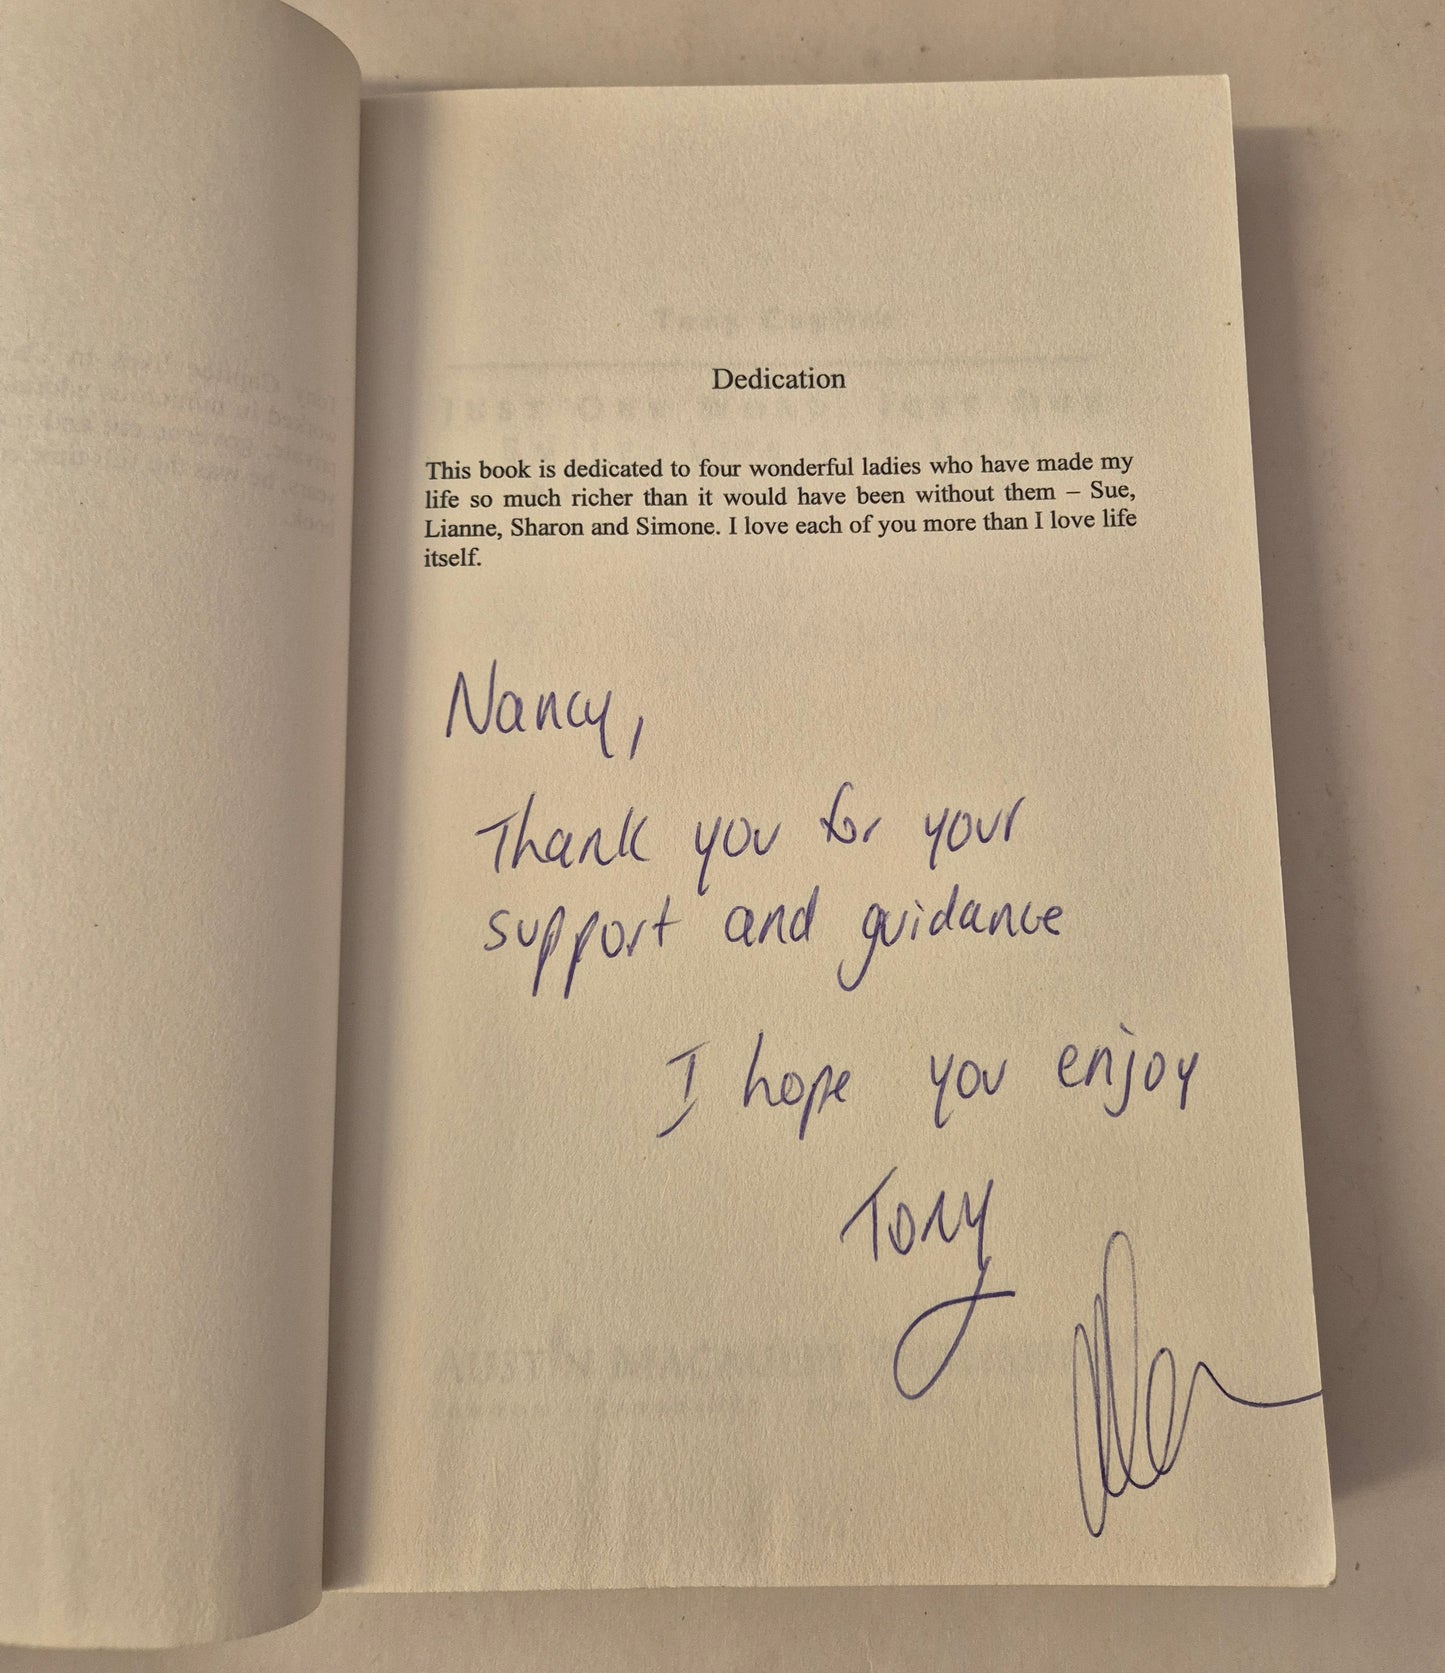 Dedication
This book is dedicated to four wonderful ladies who have made my
life so much richer than it would have been without them – Sue,
Lianne, Sharon and Simone. I love each of you more than I love life
itself.
Nancy,
Thank you for your
support and guidance
I hope you enjoy
Tony